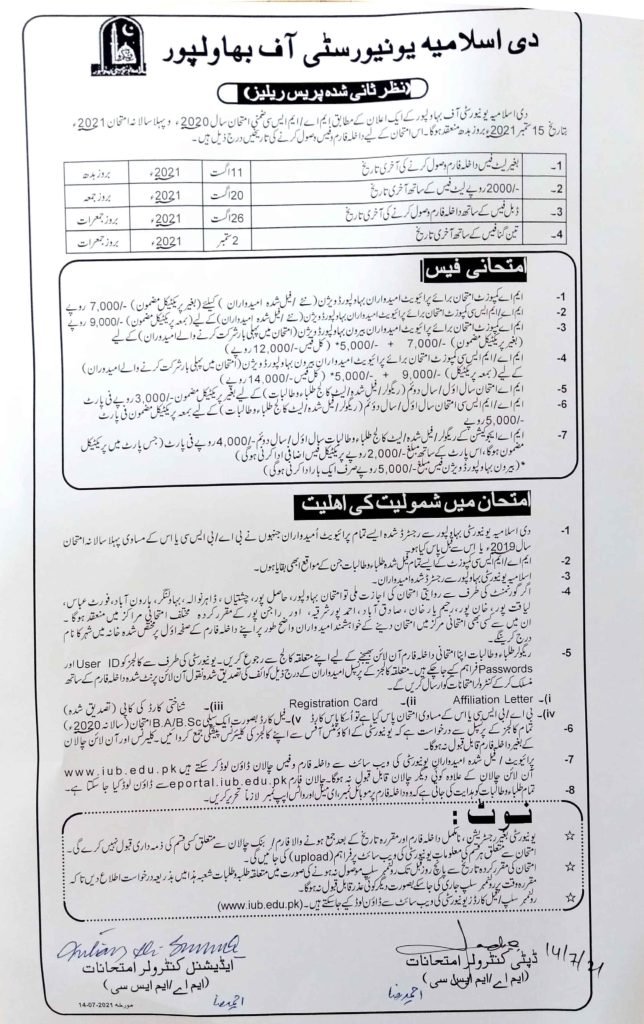 دی اسلامیہ یونیورسٹی آف بہاولپور
(نظر ثانی شدہ پریس ریلیز)
دی اسلامیہ یونیورسٹی آف بہاولپور کے ایک اعلان کے مطابق ایم اے/ایم ایس سی ضمنی امتحان سال 2020ء و پہلا سالانہ امتحان 2021ء
بتاریخ 15 ستمبر 2021ء بروز بدھ منعقد ہوگا۔ اس امتحان کے لیے داخلہ فارم و فیس وصول کرنے کی تاریخیں درج ذیل ہیں۔
1- بغیر لیٹ فیس داخلہ فارم وصول کرنے کی آخری تاریخ 11 اگست 2021ء بروز بدھ
2- -/2000 روپے لیٹ فیس کے ساتھ آخری تاریخ 20 اگست 2021ء بروز جمعہ
3- ڈبل فیس کے ساتھ داخلہ فارم وصول کرنے کی آخری تاریخ 26 اگست 2021ء بروز جمعرات
4- تین گنا فیس کے ساتھ آخری تاریخ 2 ستمبر 2021ء بروز جمعرات
امتحانی فیس
1- ایم اے کمپوزٹ امتحان برائے پرائیویٹ امیدواران بہاولپور ڈویژن (نئے/فیل شدہ امیدواران) کیلئے (بغیر پریکٹیکل مضمون) -/7,000 روپے
2- ایم اے/ایم ایس سی کمپوزٹ امتحان برائے پرائیویٹ امیدواران بہاولپور ڈویژن (نئے/فیل شدہ امیدواران) کے لیے (بمعہ پریکٹیکل مضمون) -/9,000 روپے
3- ایم اے کمپوزٹ امتحان برائے پرائیویٹ امیدواران بیرون بہاولپور ڈویژن (امتحان میں پہلی بار شرکت کرنے والے امیدواران) کے لیے
(بغیر پریکٹیکل مضمون) -/7,000 + -/5,000* (کل فیس -/12,000 روپے)
4- ایم اے/ایم ایس سی کمپوزٹ امتحان برائے پرائیویٹ امیدواران بیرون بہاولپور ڈویژن (امتحان میں پہلی بار شرکت کرنے والے امیدواران)
کے لیے (بمعہ پریکٹیکل) -/9,000 + -/5,000* (کل فیس -/14,000 روپے)
5- ایم اے امتحان سال اوّل/سال دوئم (ریگولر/فیل شدہ/لیٹ کالج طلباء و طالبات) کے لیے بغیر پریکٹیکل مضمون -/3,000 روپے فی پارٹ
6- ایم اے/ایم ایس سی امتحان سال اوّل/سال دوئم (ریگولر/فیل شدہ/لیٹ کالج طلباء و طالبات) کے لیے بمعہ پریکٹیکل مضمون فی پارٹ
-/5,000 روپے
7- ایم اے ایجوکیشن کے ریگولر/فیل شدہ/لیٹ کالج طلباء و طالبات سال اوّل/سال دوئم -/4,000 روپے فی پارٹ (جس پارٹ میں پریکٹیکل
مضمون ہوگا، اس پارٹ کے ساتھ مبلغ -/2,000 روپے پریکٹیکل فیس اضافی ادا کرنی ہوگی)
*(بیرون بہاولپور ڈویژن فیس مبلغ -/5,000 روپے صرف ایک بار ادا کرنی ہوگی)
امتحان میں شمولیت کی اہلیت
1- دی اسلامیہ یونیورسٹی بہاولپور سے رجسٹرڈ شدہ ایسے تمام پرائیویٹ اُمیدواران جنہوں نے بی اے/بی ایس سی یا اس کے مساوی پہلا سالانہ امتحان
سال 2019ء یا اس سے قبل پاس کیا ہو۔
2- ایم اے/ایم ایس سی کمپوزٹ کے ایسے تمام فیل شدہ طلباء و طالبات جن کے مواقع ابھی بقایا ہوں۔
3- اسلامیہ یونیورسٹی بہاولپور سے رجسٹرڈ شدہ امیدواران۔
4- اگر گورنمنٹ کی طرف سے روایتی امتحان کی اجازت ملی تو امتحان بہاولپور، حاصل پور، چشتیاں، ڈاہرانوالہ، بہاولنگر، ہارون آباد، فورٹ عباس،
لیاقت پور، خان پور، رحیم یار خان، صادق آباد، احمد پور شرقیہ، اور راجن پور کے مقرر کردہ مختلف امتحانی مراکز میں منعقد ہوگا۔
ان میں سے کسی بھی امتحانی مرکز میں امتحان دینے کے خواہشمند امیدواران واضح طور پر اپنے داخلہ فارم کے صفحہ اول پر مختص شدہ خانہ میں شہر کا نام
درج کریں گے۔
5- ریگولر طلباء و طالبات اپنا امتحانی داخلہ فارم آن لائن بھیجنے کے لیے اپنے متعلقہ کالج سے رجوع کریں۔ یونیورسٹی کی طرف سے کالجز کو User ID اور
Passwords فراہم کیے جا چکے ہیں۔ متعلقہ کالج کے پرنسپل امیدواران کے درج ذیل کوائف کی تصدیق شدہ نقول آن لائن پرنٹ شدہ داخلہ فارم کے ساتھ
منسلک کر کے کنٹرولر امتحانات کو ارسال کریں گے۔
i)- Affiliation Letter ii)- Registration Card iii)- شناختی کارڈ کی کاپی (تصدیق شدہ)
iv)- بی اے/بی ایس سی یا اس کے مساوی امتحان پاس کیا ہے تو اُسکا پاس کارڈ v)- فیل کارڈ بصورت ایک سپلی B.A/B.Sc امتحان (سالانہ 2020ء)
6- تمام کالجز کے پرنسپل سے درخواست ہے کہ یونیورسٹی کے اکاؤنٹس آفس سے اپنے کالج کی کلیئرنس پیشگی جمع کروا دیں۔ کلیئرنس اور آن لائن چالان
کے بغیر داخلہ فارم قابل قبول نہ ہوگا۔
7- پرائیویٹ/فیل شدہ امیدواران یونیورسٹی کی ویب سائٹ سے داخلہ فارم و فیس چالان ڈاون لوڈ کر سکتے ہیں www.iub.edu.pk
آن لائن چالان کے علاوہ کوئی دیگر چالان قابل قبول نہ ہوگا۔ چالان فارم eportal.iub.edu.pk سے ڈاون لوڈ کیا جا سکتا ہے۔
8- تمام طلباء و طالبات کو ہدایت کی جاتی ہے کہ وہ داخلہ فارم پر موبائل نمبر، ای میل اور واٹس ایپ نمبر لازما تحریر کریں۔
نوٹ:
☆ یونیورسٹی بغیر رجسٹریشن، نامکمل داخلہ فارم اور مقررہ تاریخ کے بعد جمع ہونے والا فارم/بینک چالان سے متعلق کسی قسم کی ذمہ داری قبول نہیں کرے گی۔
امتحان سے متعلق ہر قسم کی معلومات یونیورسٹی کی ویب سائٹ پر فراہم (upload) کی جائیں گی۔
☆ امتحان کی مقرر کردہ تاریخ سے پانچ روز قبل تک رولنمبر سلپ موصول نہ ہونے کی صورت میں متعلقہ طلبہ و طالبات شعبہ ہذا میں بذریعہ درخواست اطلاع دیں تا کہ
مقررہ وقت پر رولنمبر سلپ جاری کی جا سکے بصورت دیگر کوئی عذر قابل قبول نہ ہوگا۔
☆ رولنمبر سلپ/فیل کارڈز یونیورسٹی کی ویب سائٹ سے ڈاون لوڈ کیے جا سکتے ہیں۔ (www.iub.edu.pk)
14/7/21
ڈپٹی کنٹرولر امتحانات
(ایم اے/ایم ایس سی)
ایڈیشنل کنٹرولر امتحانات
(ایم اے/ایم ایس سی)
مورخہ 14-07-2021